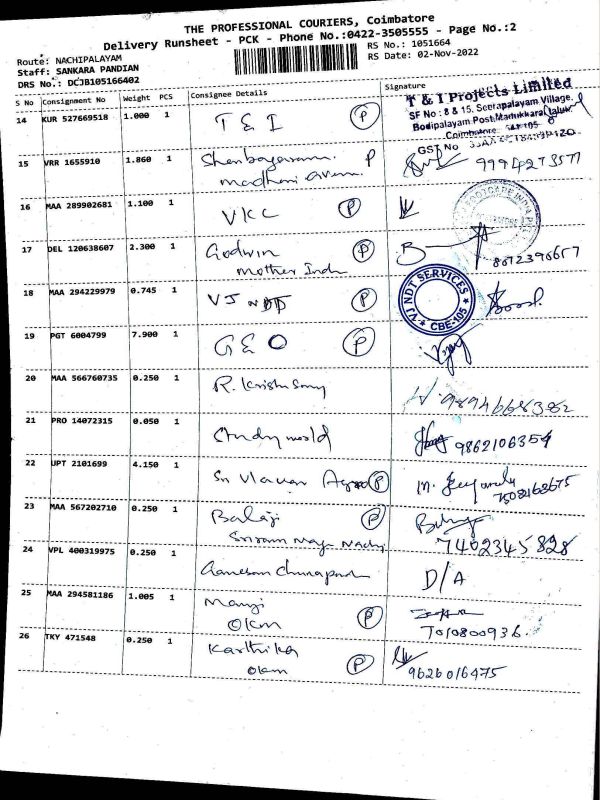 THE PROFESSIONAL COURIERS, Coimbatore
Delivery Runsheet - PCK - Phone No.:0422-3505555 - Page No.:2
Route: NACHIPALAYAM
RS No.: 1051664
Staff: SANKARA PANDIAN
RS Date: 02-Nov-2022
DRS No.: DCJB105166402
S No Consignment No Weight PCS Consignee Details Signature
14 KUR 527669518 1.000 1 T & I P
T & I Projects Limited
SF No : 8 & 15, Seerapalayam Village,
Bodipalayam Post, Madukkarai Taluk,
Coimbatore - 641 105
GST No
15 VRR 1655910 1.860 1 P 9994273577
16 MAA 289902681 1.100 1 VKC P
17 DEL 120638607 2.300 1 Godwin P
Mother India
8072390657
18 MAA 294229979 0.745 1 VJ NDT P
VJ NDT SERVICES
CBE-105
19 PGT 6004799 7.900 1 GEO P
20 MAA 566760735 0.250 1 R. Krishnasamy
21 PRO 14072315 0.050 1 Candy world 9862106354
22 UPT 2101699 4.150 1 Sri Vlavan Agro P
23 MAA 567202710 0.250 1 Balaji P
Sriram Nagar
7402345828
24 VPL 400319975 0.250 1 Ganesan D/A
25 MAA 294581186 1.005 1 P
OKM
7010800936
26 TKY 471548 0.250 1 Karthika P
OKM
9626016475